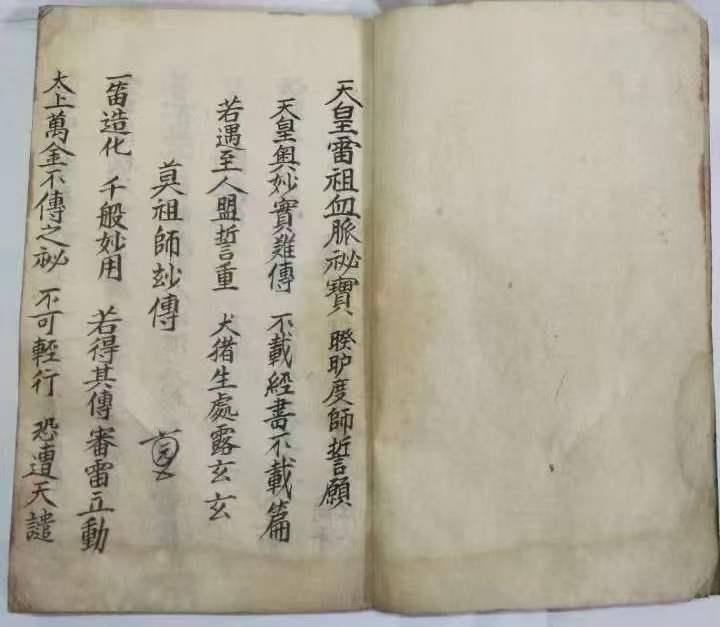 天皇雷祖血脈祕寶 睽𥅆度師誓願
天皇奥妙實難傳 不載經書不載篇
若遇至人盟誓重 犬猪生處露玄玄
莫祖師玅傳
一笛造化 千般妙用 若得其傳審雷立動
太上萬金不傳之祕 不可輕行 恐遭天譴